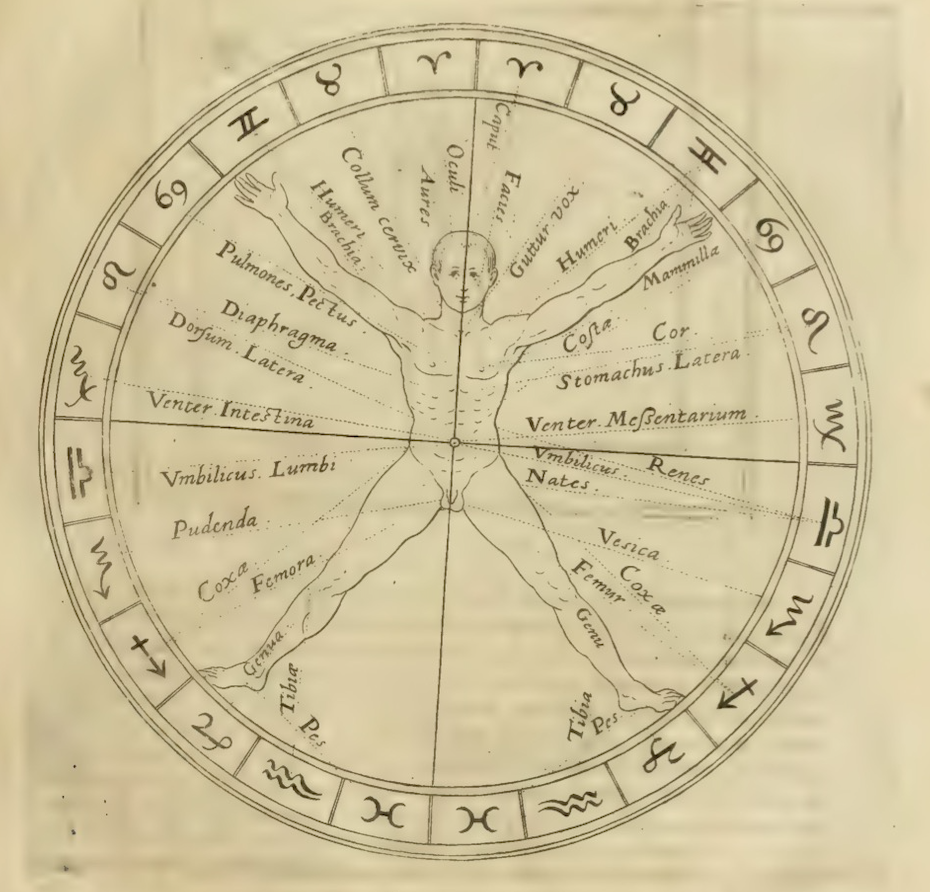 Caput
Oculi
Aures
Facies
Collum cervix
Guttur vox
Humeri
Brachia.
Humeri
Brachia
Mammillæ
Pulmones. Pectus
Diaphragma.
Dorſum. Latera.
Coſtæ
Cor
Stomachus. Latera.
Venter. Inteſtina
Venter. Meſſentarium
Vmbilicus. Lumbi
Vmbilicus.
Renes
Nates.
Pudenda.
Vesica
Coxæ
Femora.
Coxæ
Femur
Genua.
Genu
Tibiæ
Pes.
Tibia
Pes
♈ ♉ ♊ ♋ ♌ ♍ ♎ ♏ ♐ ♑ ♒ ♓
♓ ♒ ♑ ♐ ♏ ♎ ♍ ♌ ♋ ♊ ♉ ♈